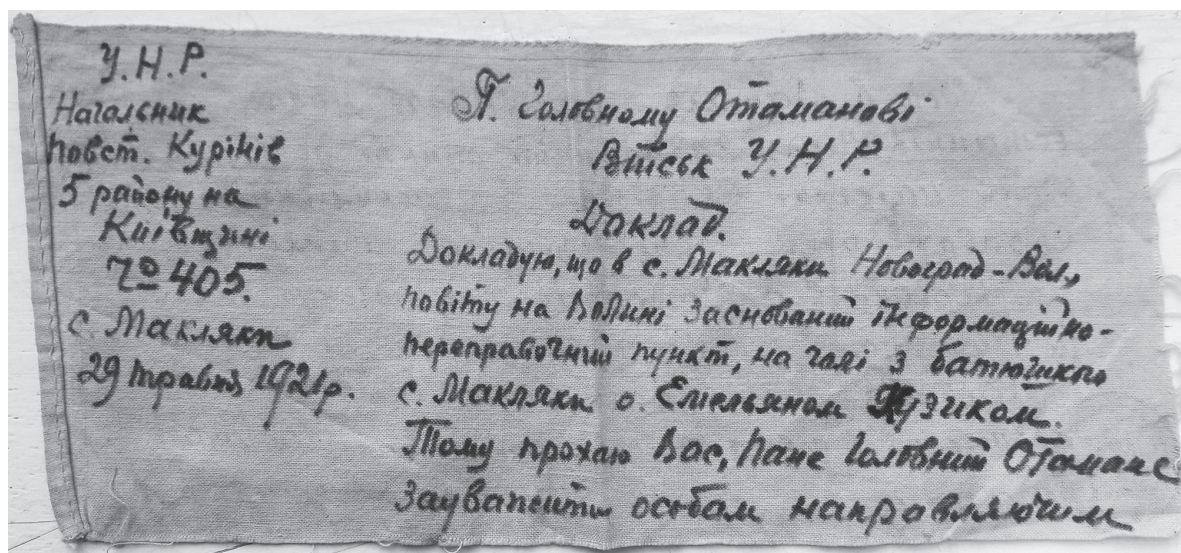 У.Н.Р.
Начальник
повст. Курінів
5 району на
Київщині
№ 405.
с. Макляки
29 травня 1921р.
П. Головному Отаманові
Військ У.Н.Р.
Доклад.
Докладую, що в с. Макляки Новоград-Вол,
повіту на Волині заснований інформаційно-
переправочний пункт, на чолі з батюшкою
с. Макляки о. Емельяном Кузиком.
Тому прохаю Вас, Пане Головний Отамане
зауважити особам направляючим